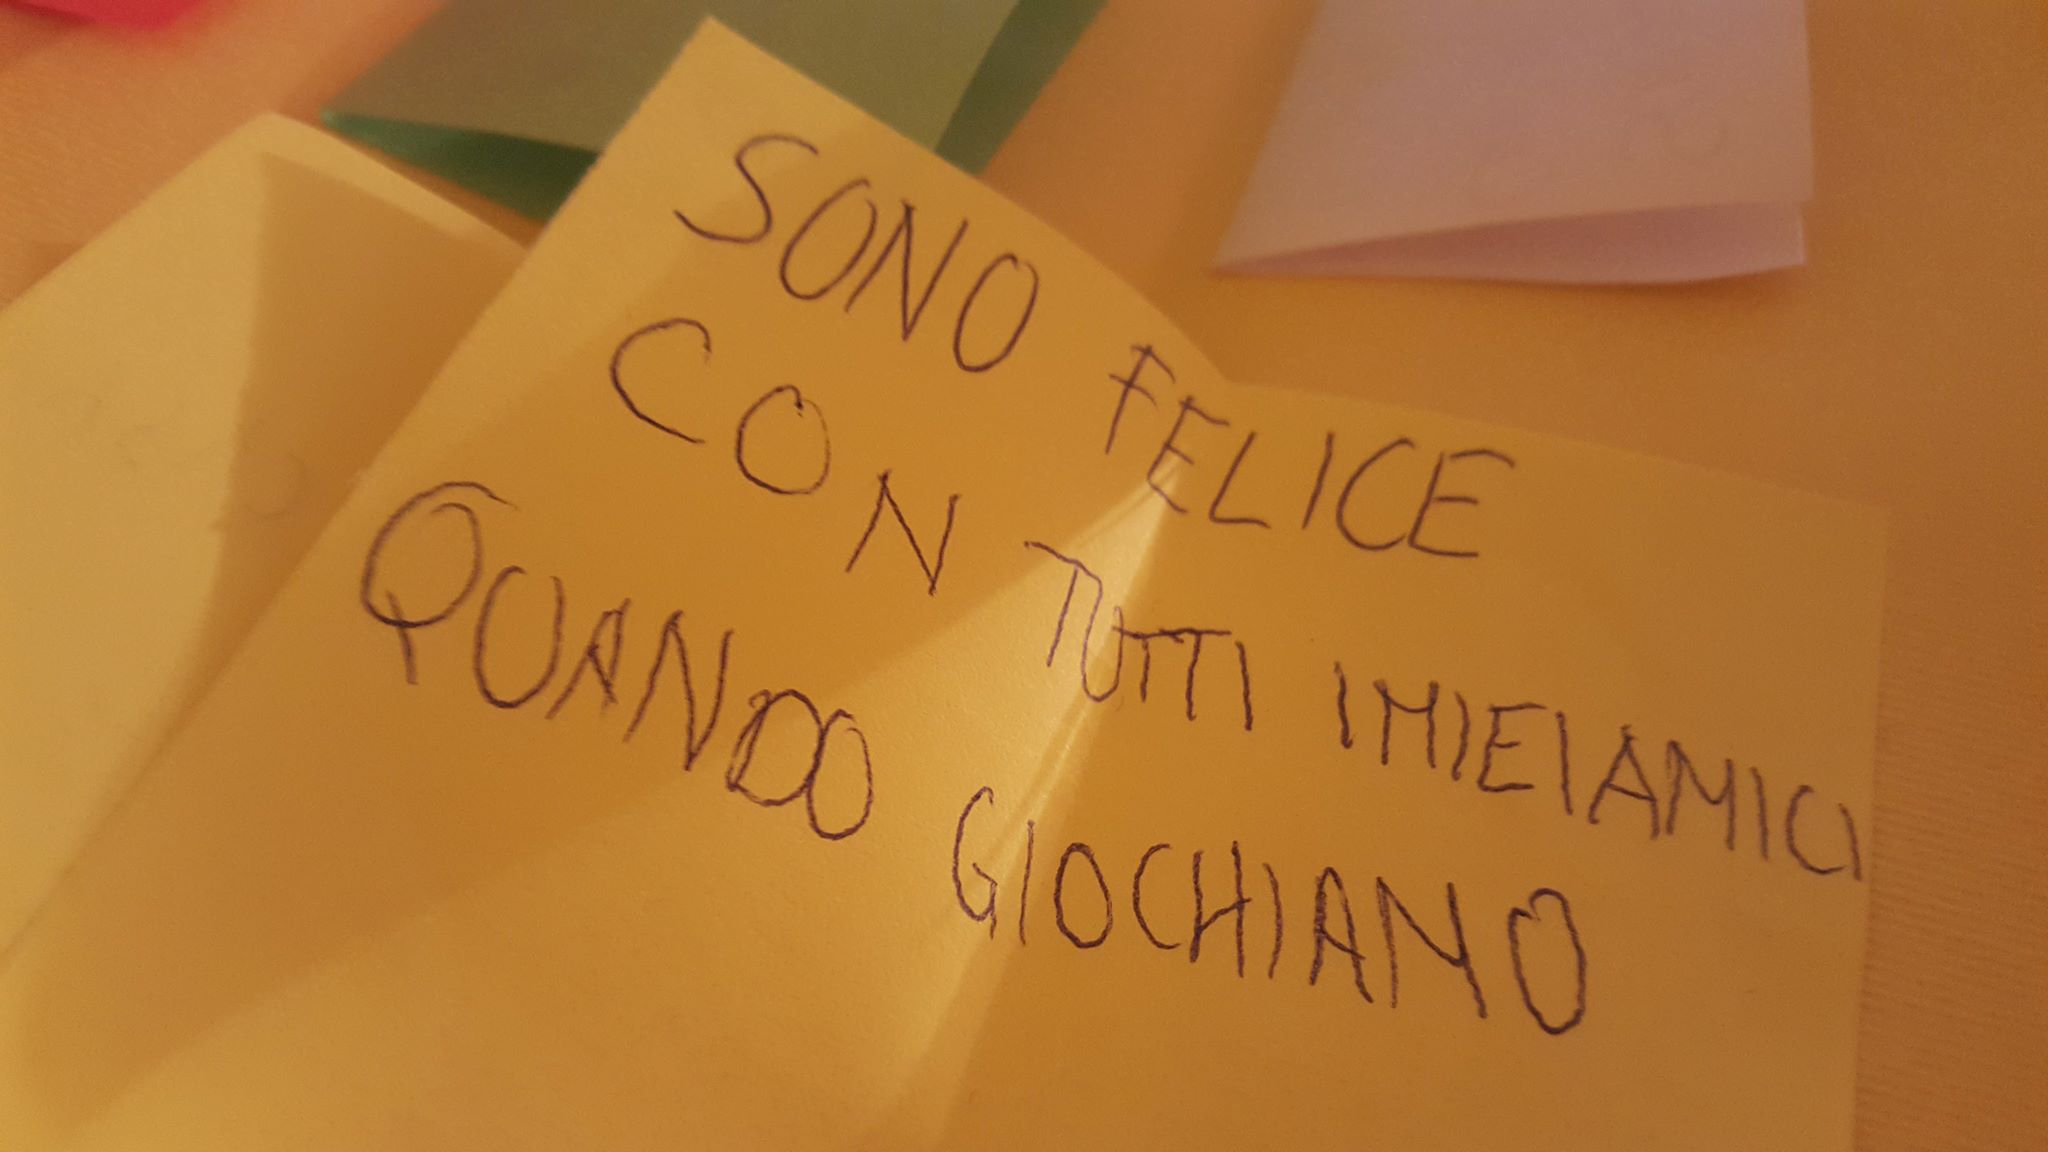 SONO FELICE
CON TUTTI IMIEIAMICI
QUANDO GIOCHIANO